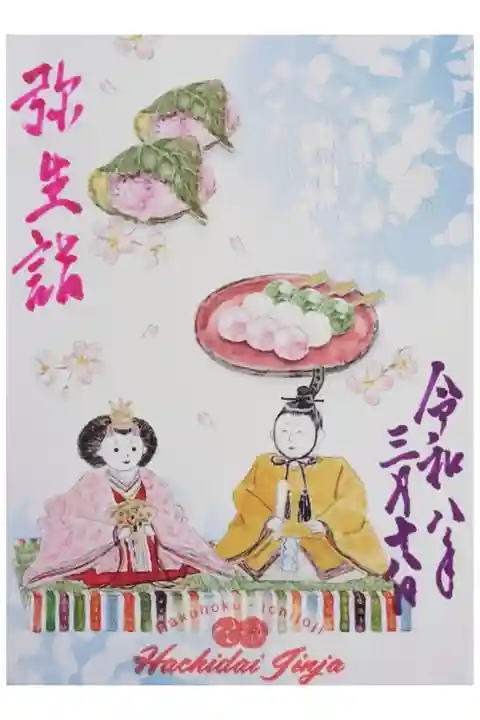 弥生詣
令和八年
三月十八日
Rakuhoku - Ichijoji
Hachidai Jinja